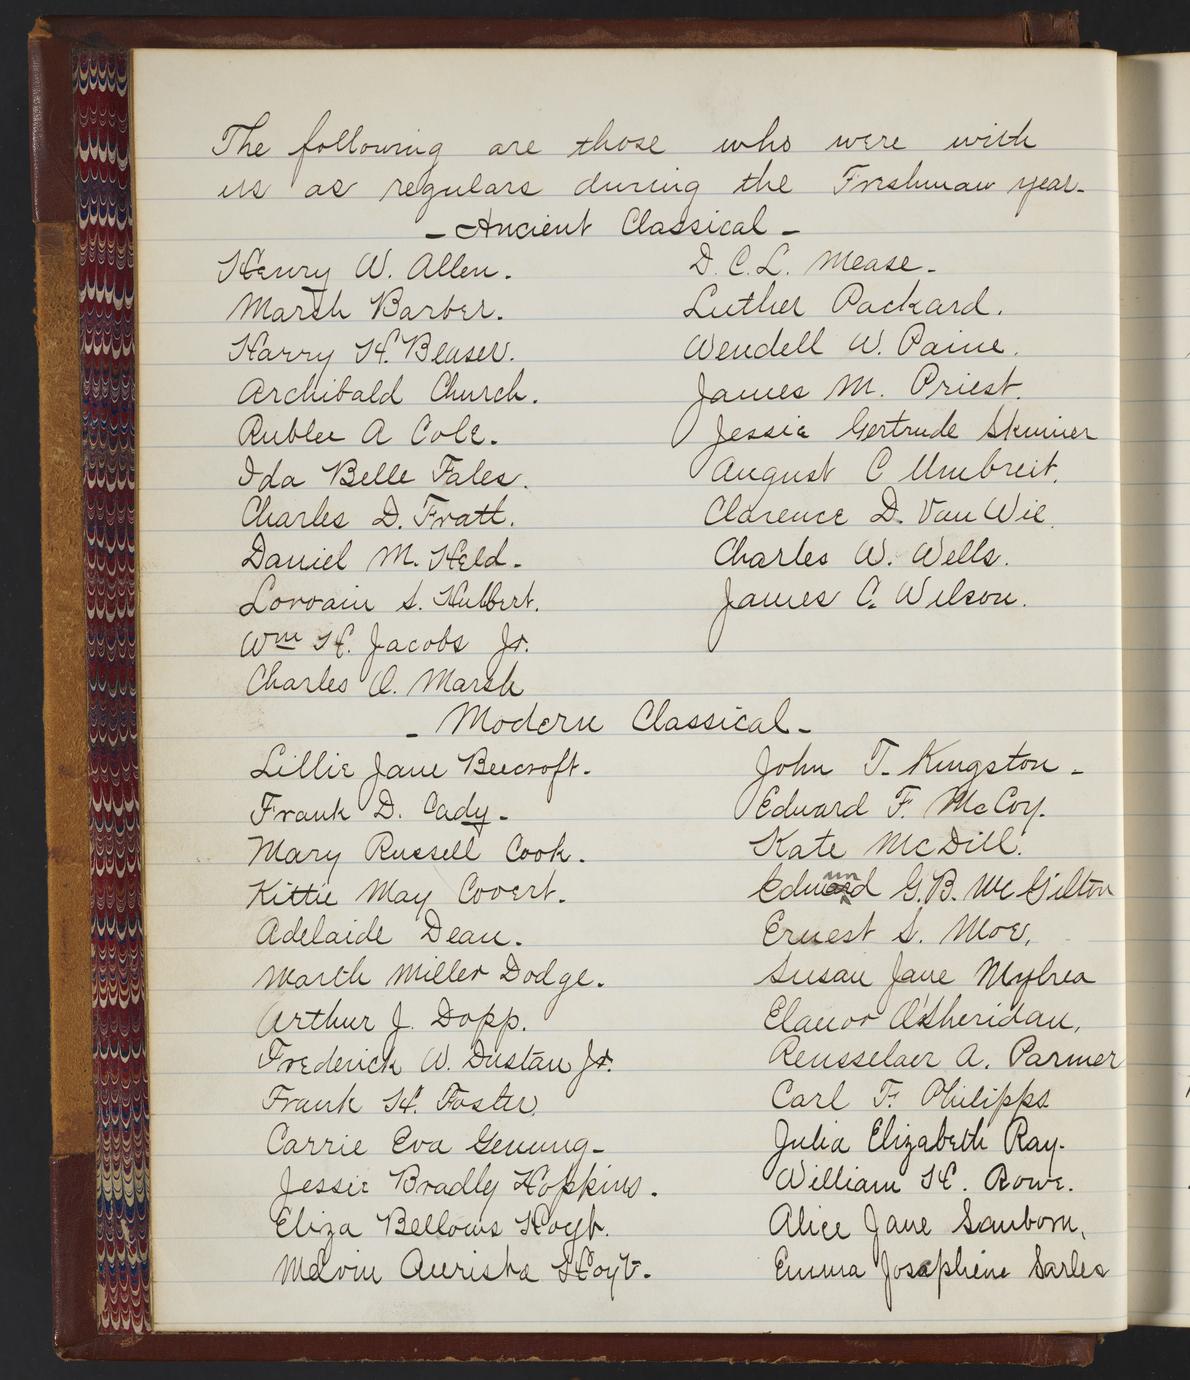 The following are those who were with
us as regulars during the Freshman year-
- Ancient Classical -
Henry W. Allen.
Marsh Barber.
Harry H. Beaser.
Archibald Church.
Rublee A Cole.
Ida Belle Fales.
Charles D. Fratt.
Daniel M. Held.
Lorrain S. Hulbert.
Wm H. Jacobs Jr.
Charles O. Marsh
D. C. L. Mease.
Luther Packard.
Wendell W. Paine.
James M. Priest.
Jessie Gertrude Skinner
August C Umbreit.
Clarence D. Van Wie.
Charles W. Wells.
James C. Wilson.
- Modern Classical -
Lillie Jane Beecroft.
Frank D. Cady-
Mary Russell Cook.
Kittie May Covert.
Adelaide Dean.
Marth Miller Dodge.
Arthur J. Dopp.
Frederick W. Dustan Jr.
Frank H. Foster.
Carrie Eva Genung-
Jessie Bradly Hopkins.
Eliza Bellows Hoyt.
Melvin Hoyt.
John T. Kingston -
Edward F. McCoy.
Kate McDill.
G. B. McGilton
Ernest S. Moe,
Susan Jane Mylrea
Elanor O'Sheridan,
Rensselaer A. Parmer
Carl F. Philipps
Julia Elizabeth Ray.
William H. Rowe.
Alice Jane Sanborn,
Emma Josephine Sarles